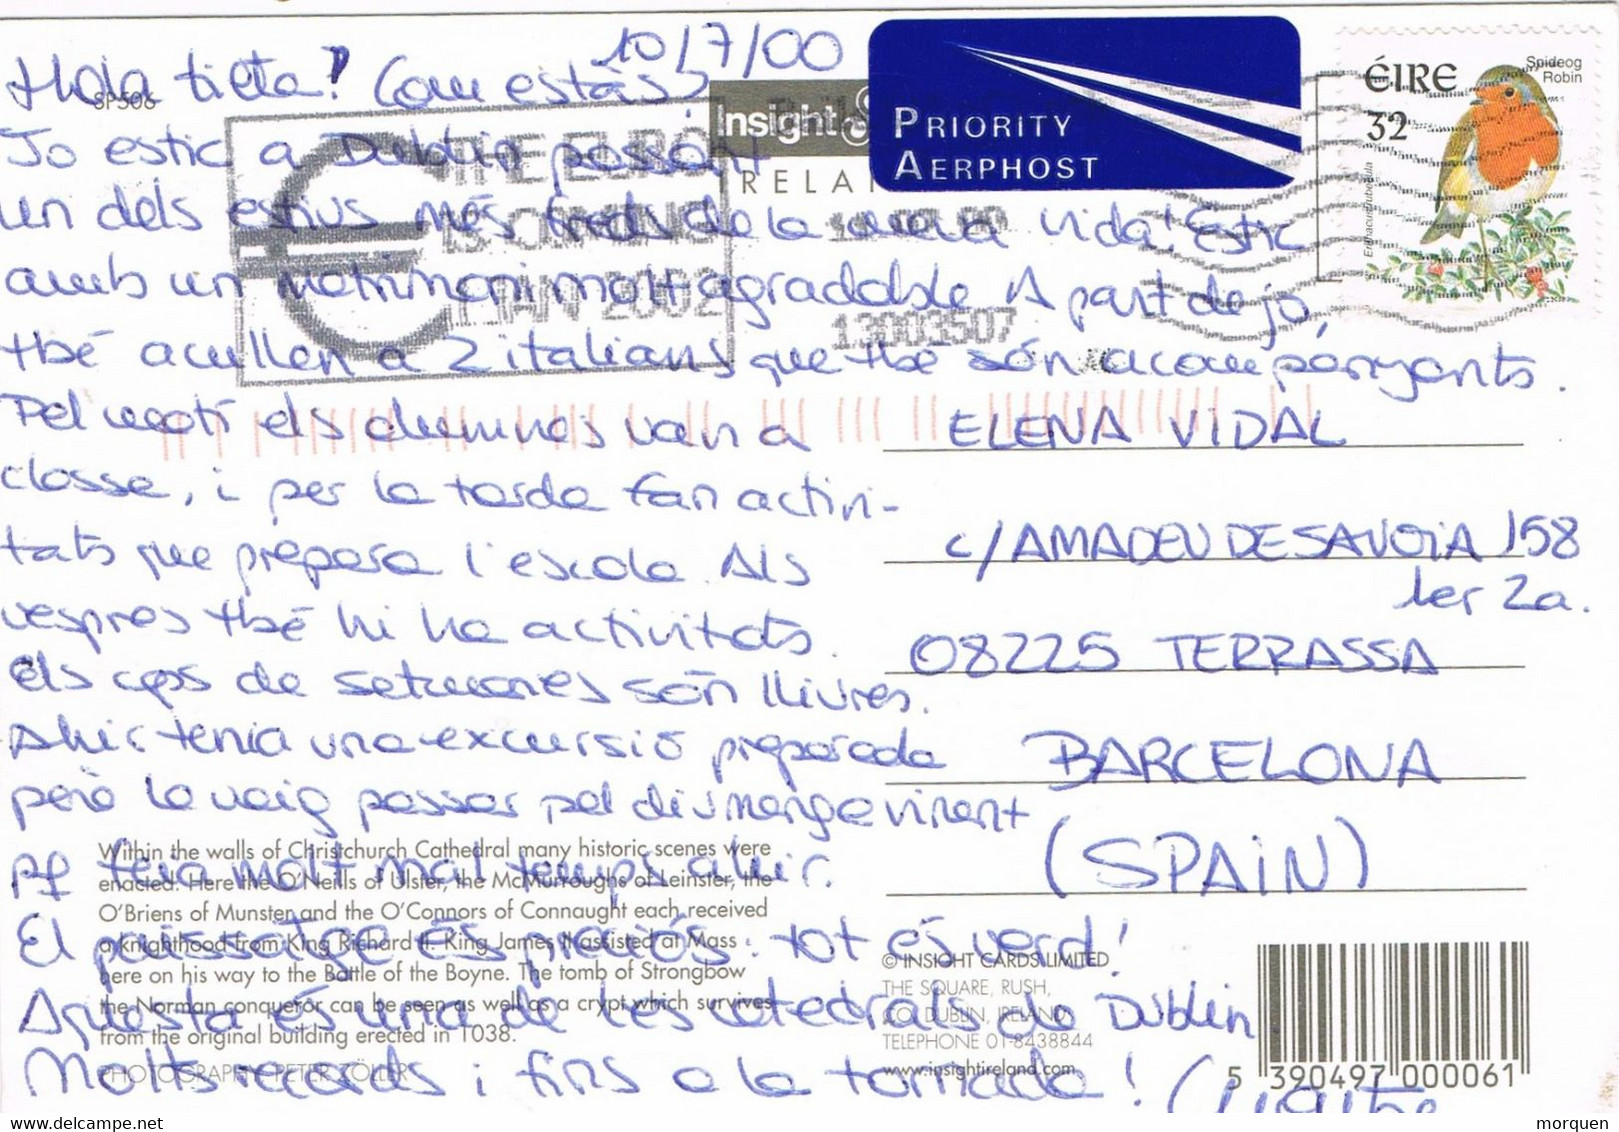 10/7/00
Hola tieta! Com estàs?
SP506
Jo estic a Dublin passant
un dels estius més freds de la meva vida! Estic
amb un matrimoni molt agradable. A part de jo,
tbé acullen a 2 italians que tbé són acompanyants.
Pel matí els alumnes van a
classe, i per la tarda fan activi-
tats que prepara l'escola. Als
vespres tbé hi ha activitats.
Els caps de setmanes són lliures.
Ahir tenia una excursió preparada
però la vaig passar pel diumenge vinent
pq feia molt mal temps ahir.
El paisatge és preciós. tot és verd!
Aquesta és una de les catedrals de Dublin
Molts records i fins a la tornada!
Insight
IRELAND
PRIORITY
AERPHOST
ÉIRE
32
Spideog
Robin
Erithacus rubecula
THE EURO
IS COMING
1 JAN 2002
13003507
ELENA VIDAL
c/AMADEU DE SAVOIA 158
1er 2a.
08225 TERRASSA
BARCELONA
(SPAIN)
Within the walls of Christchurch Cathedral many historic scenes were
enacted. Here the O'Neills of Ulster, the McMurroughs of Leinster, the
O'Briens of Munster and the O'Connors of Connaught each received
a knighthood from King Richard II. King James II assisted at Mass
here on his way to the Battle of the Boyne. The tomb of Strongbow
the Norman conqueror can be seen as well as a crypt which survives
from the original building erected in 1038.
PHOTOGRAPHY PETER ZÖLLER
© INSIGHT CARDS LIMITED
THE SQUARE, RUSH,
CO. DUBLIN, IRELAND
TELEPHONE 01-8438844
www.insightireland.com
5 390497 000061
morquen